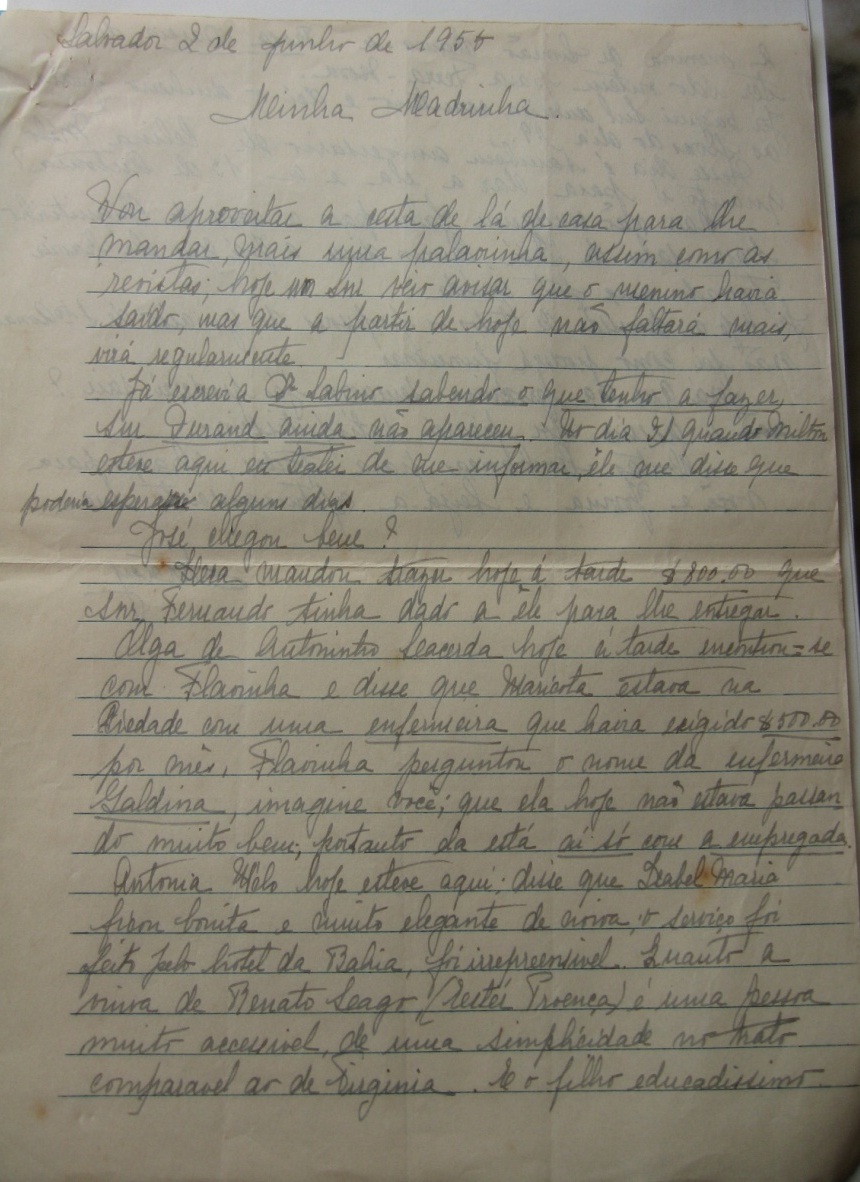 Salvador 2 de junho de 1955
Minha Madrinha.
Vou aproveitar a cesta de lá de casa para lhe
mandar, mais uma palavrinha, assim como as
revistas; hoje um Snr veio avisar que o menino havia
saído, mas que a partir de hoje não faltará mais,
virá regularmente.
Já escrevi a Dr Sabino sabendo o que tenho a fazer,
Snr Durand ainda não apareceu. No dia 31 quando Milton
esteve aqui eu tratei de me informar, êle me disse que
poderia esperar alguns dias.
José chegou bem?
mandou trazer hoje á tarde $800.00 que
Snr Fernando tinha dado a êle para lhe entregar.
Olga de Antoninho Lacerda hoje á tarde encontrou=se
com Flavinha e disse que Maricota estava na
Piedade com uma enfermeira que havia exigido $500.00
por mês, Flavinha perguntou o nome da enfermeira
Galdina, imagine você; que ela hoje não estava passan
do muito bem, portanto ela está aí só com a empregada.
Antonia Mélo hoje esteve aqui; disse que Isabel Maria
ficou bonita e muito elegante de noiva, o serviço foi
feito pelo hotel da Bahia, foi irrepreensivel. Quanto a
viuva de Renato (Proença) é uma pessoa
muito accessivel, de uma simplicidade no trato
comparavel ao de Virginia. E o filho educadissimo.